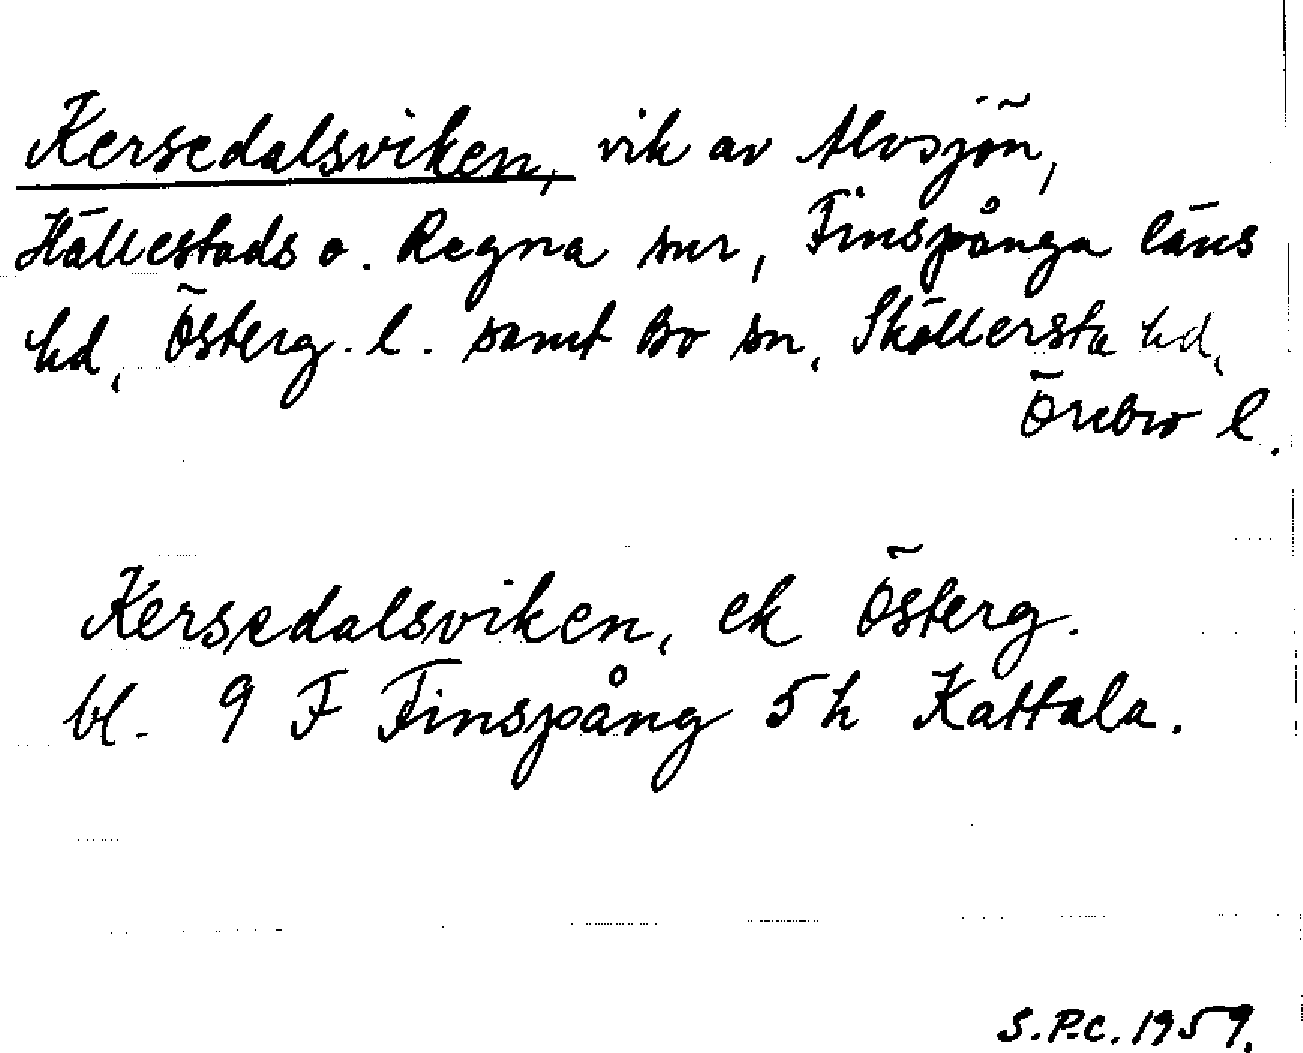 Kersedalsviken, vik av Alvsjön,
Hällestads o. Regna snr, Finspånga läns
hd, Österg. l. samt Bo sn, Sköllersta hd,
Örebro l.
Kersedalsviken, ek Österg.
bl. 9 F Finspång 5h Kattala.
S.P.C. 1959.